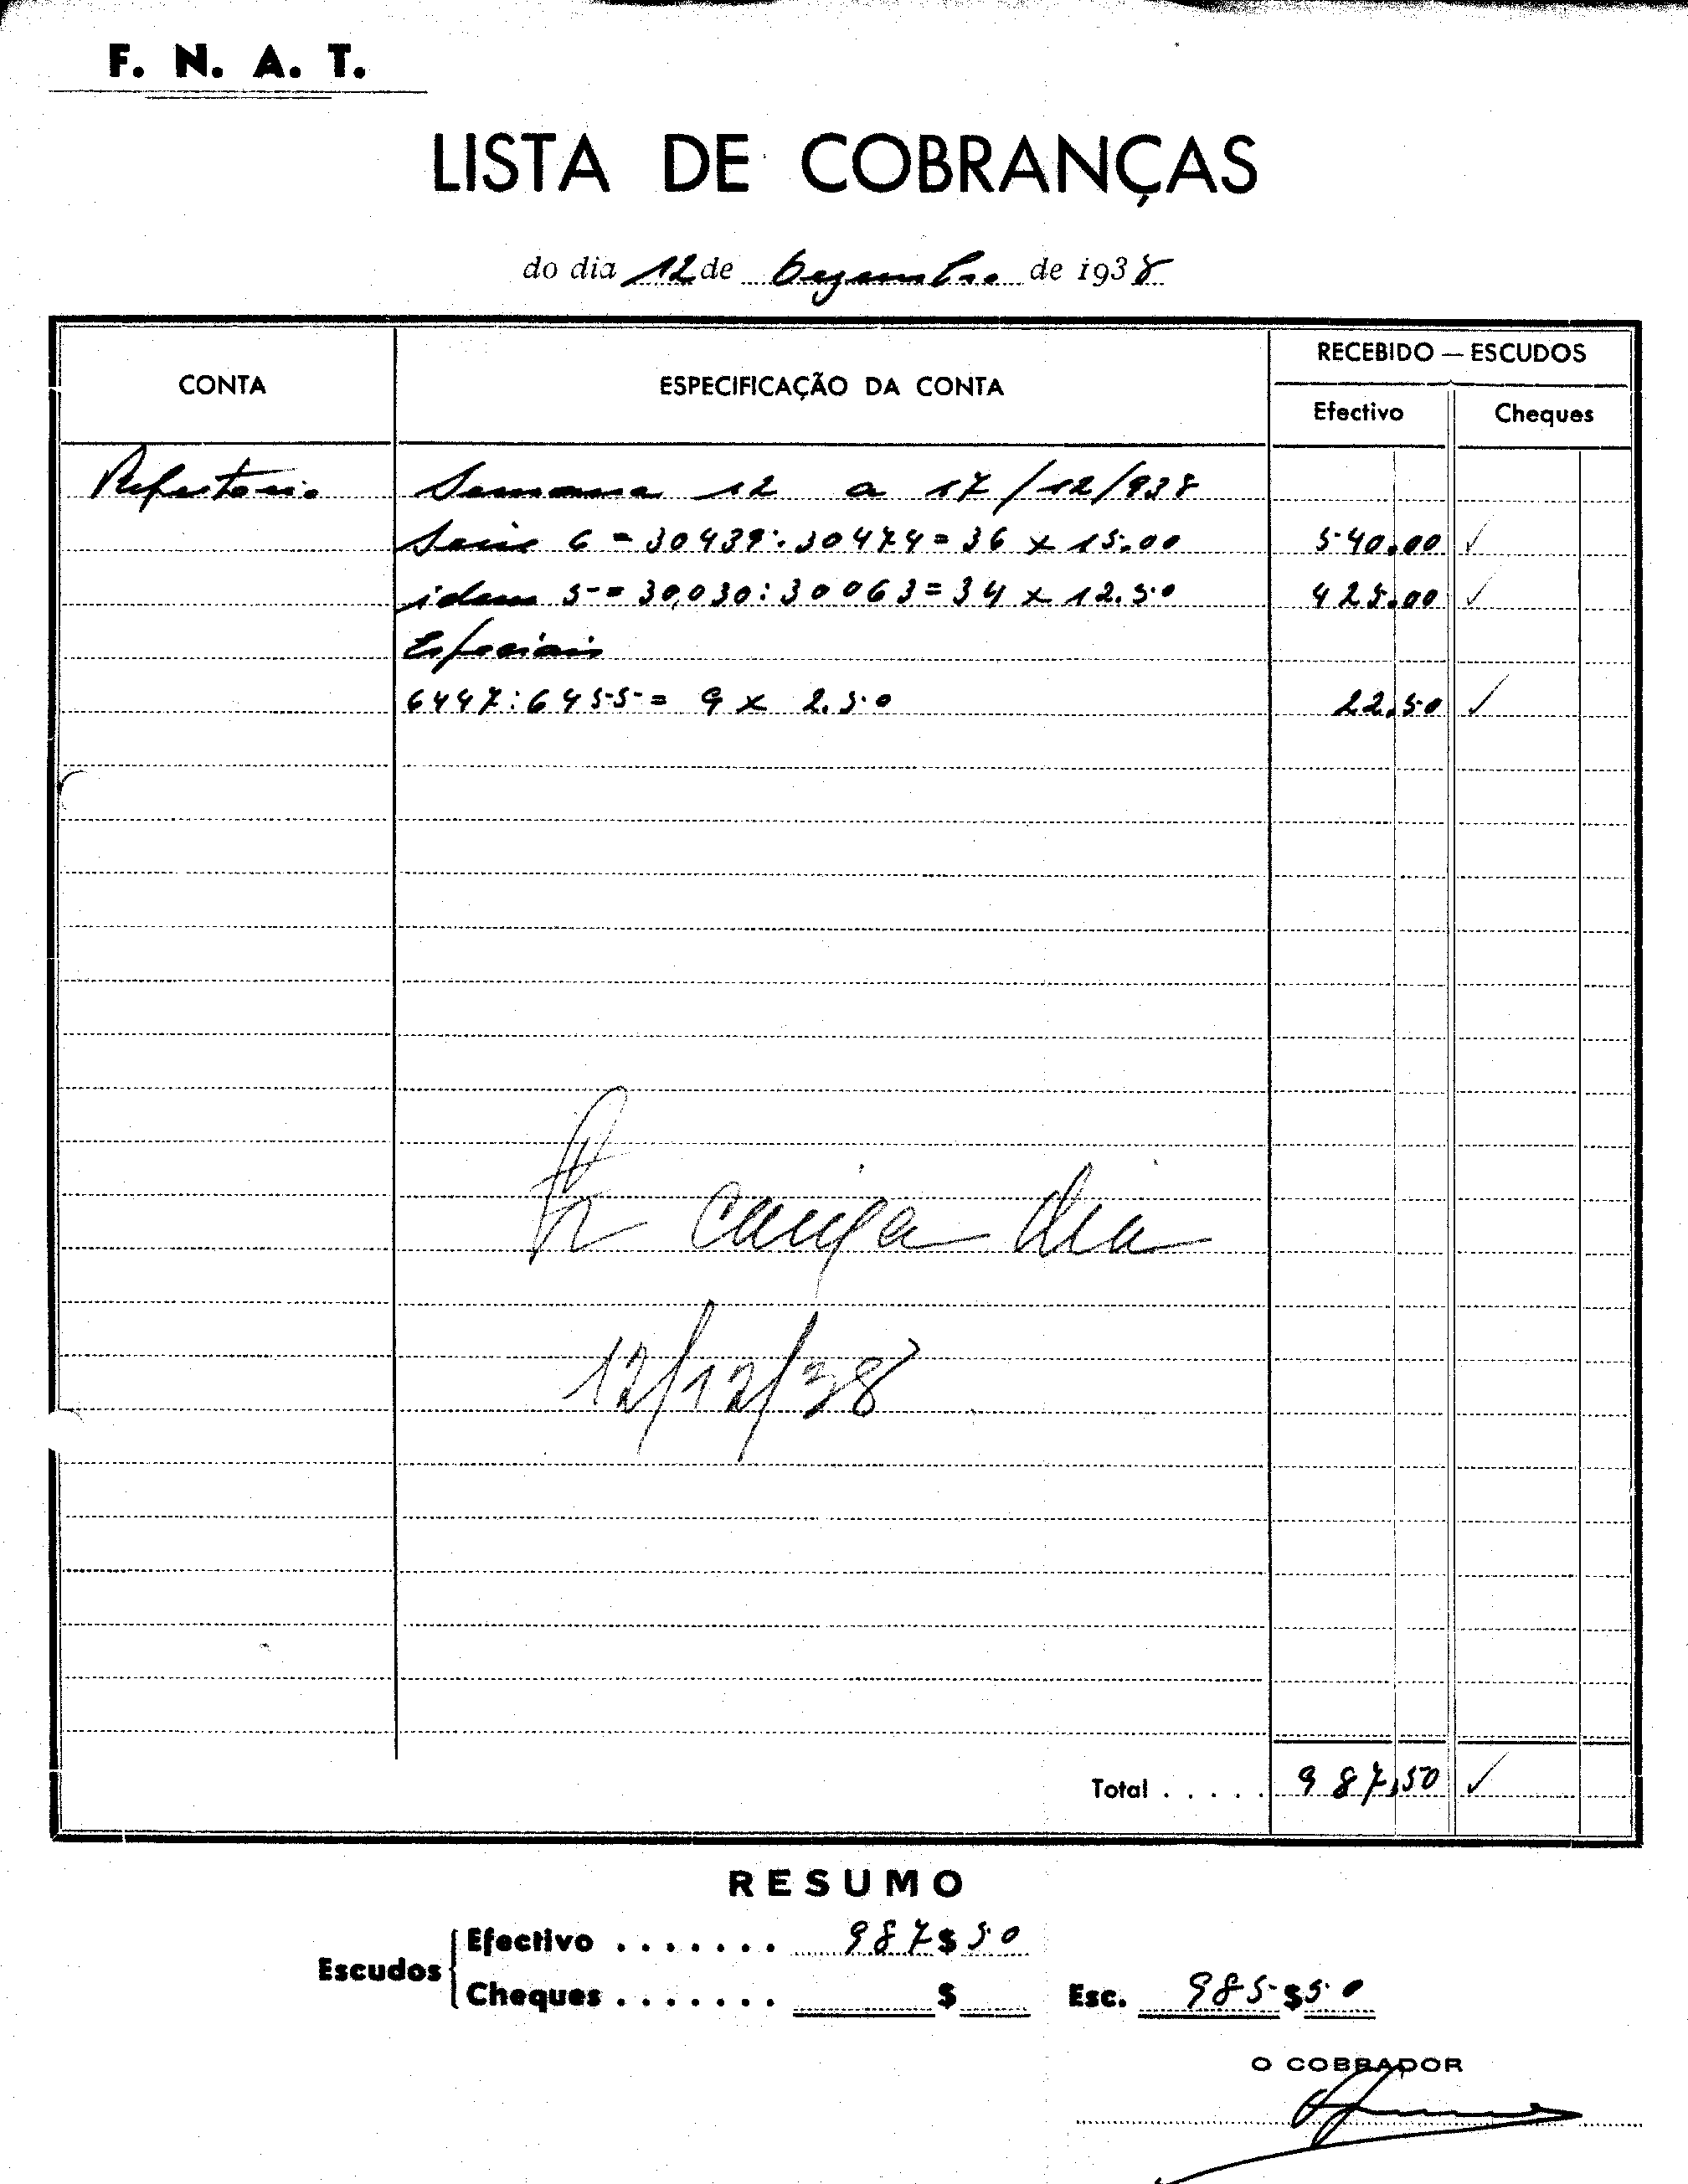 F. N. A. T.
LISTA DE COBRANÇAS
do dia 12 de Dezembro de 1938
CONTA
ESPECIFICAÇÃO DA CONTA
RECEBIDO — ESCUDOS
Efectivo
Cheques
Refeitorio Semana 12 a 17/12/938
Serie 6 = 30439:30474 = 36 x 15.00 540.00 ✓
idem 5 = 30,030:30063 = 34 x 12.50 425.00 ✓
Especiais
6447:6455 = 9 x 2.50 22.50 ✓
caixa dia
12/12/38
Total . . . . . 987,50 ✓
RESUMO
Escudos
Efectivo . . . . . . . 987$50
Cheques . . . . . . . $ Esc. 985$50
O COBRADOR